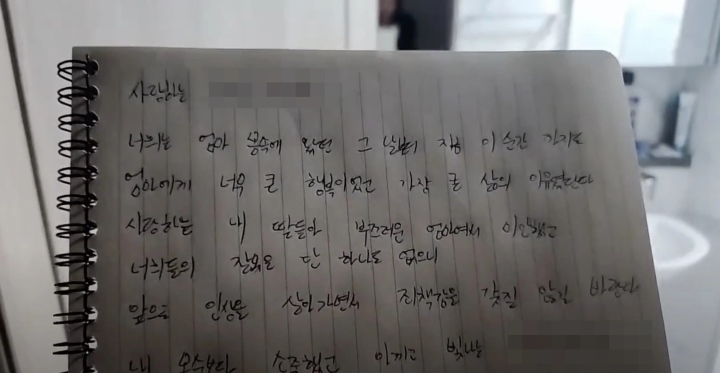 사랑하는
너희는 엄마 뱃속에 왔던 그 날부터 지금 이 순간 까지도
엄마에게 너무 큰 행복이었고 가장 큰 삶의 이유였단다
사랑하는 내 딸들아 부끄러운 엄마여서 미안했고
너희들의 잘못은 단 하나도 없으니
앞으로 인생을 살아가면서 죄책감을 갖질 않길 바란다
내 목숨보다 소중했고 아끼고